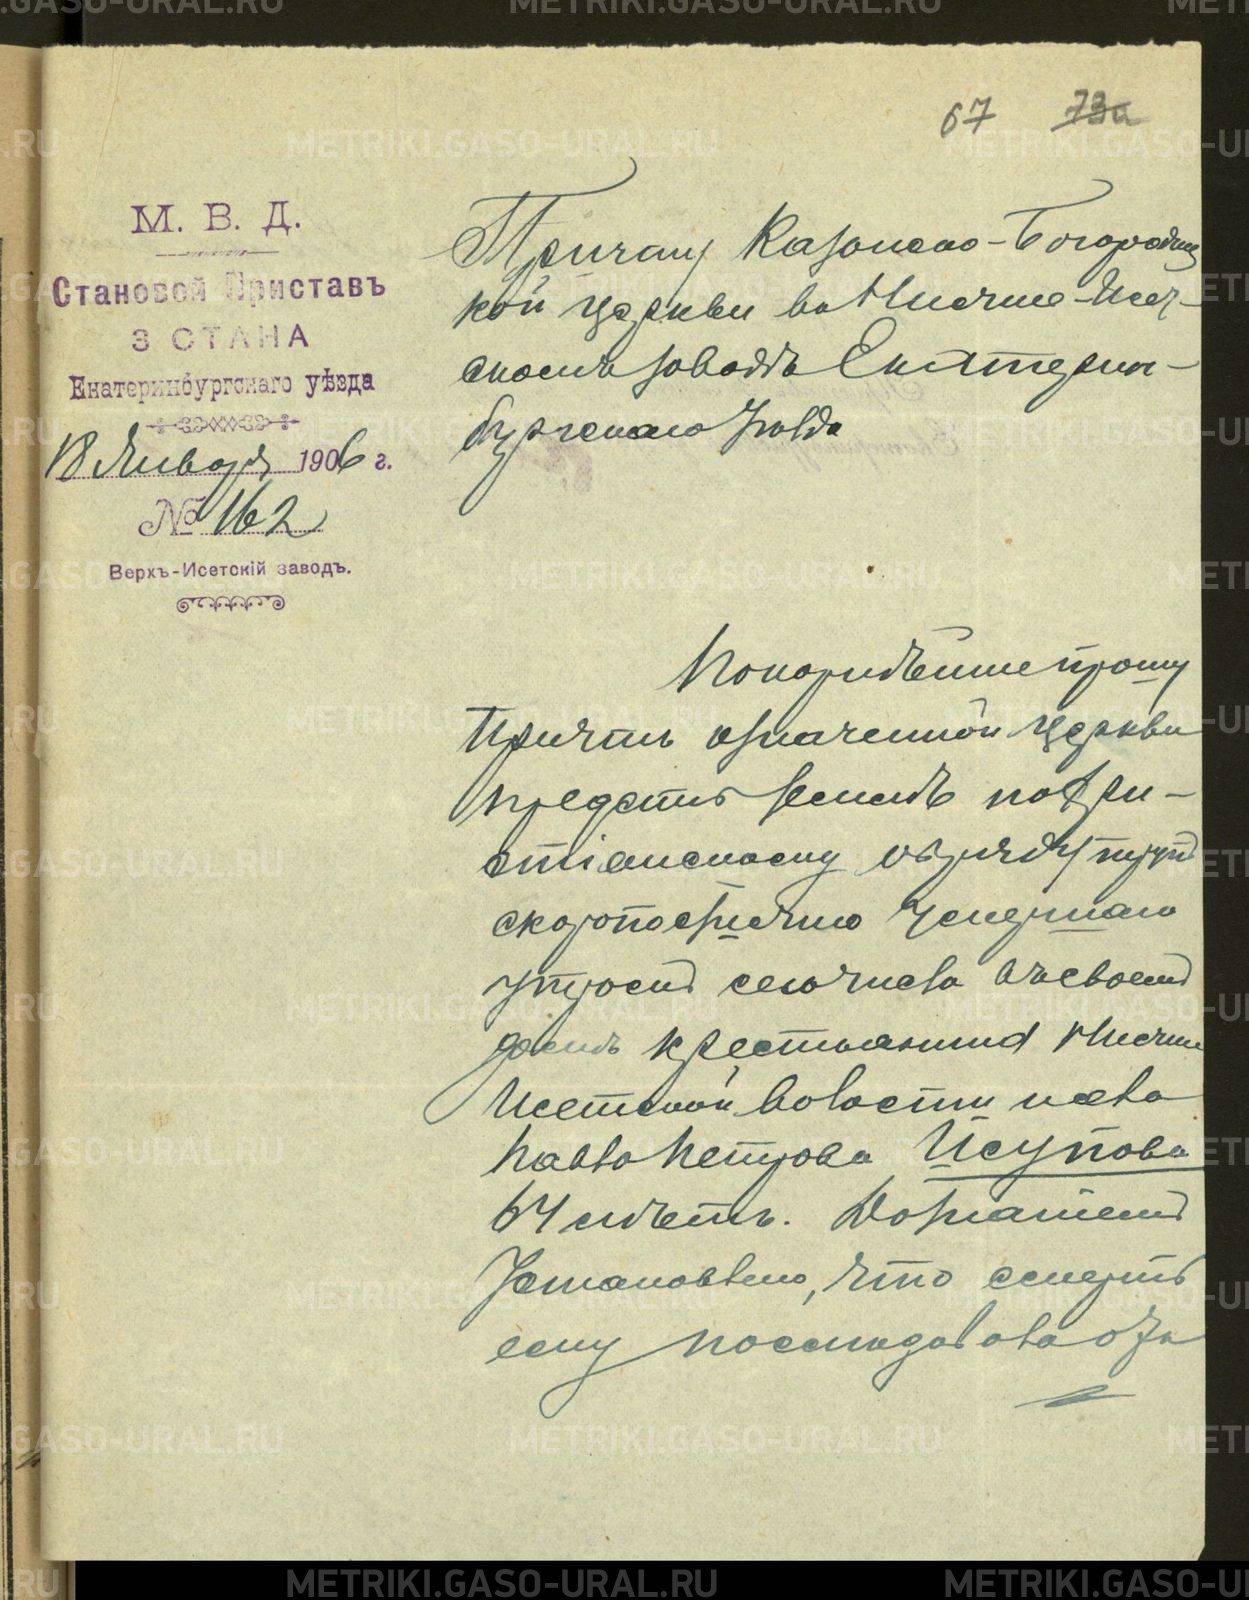 67 73а
М. В. Д.
Становой Приставъ
3 СТАНА
Екатеринбургскаго уѣзда
18 Января 1906 г.
№ 162
Верхъ-Исетскій заводъ.
Причту Казанско-Богородиц
кой церкви въ Нижне-Исет-
скомъ заводѣ Екатерин-
бургскаго уѣзда
Покорнѣйше прошу
Причтъ означенной церкви
предать землѣ по хри-
стіанскому обряду трупъ
скоропостижно умершаго
утромъ сего числа въ своемъ
домѣ крестьянина Нижне
Исетской волости
Павла Петрова Исупова
64 лѣтъ. Дознаніемъ
установлено, что смерть
ему последовала отъ
METRIKI.GASO-URAL.RU